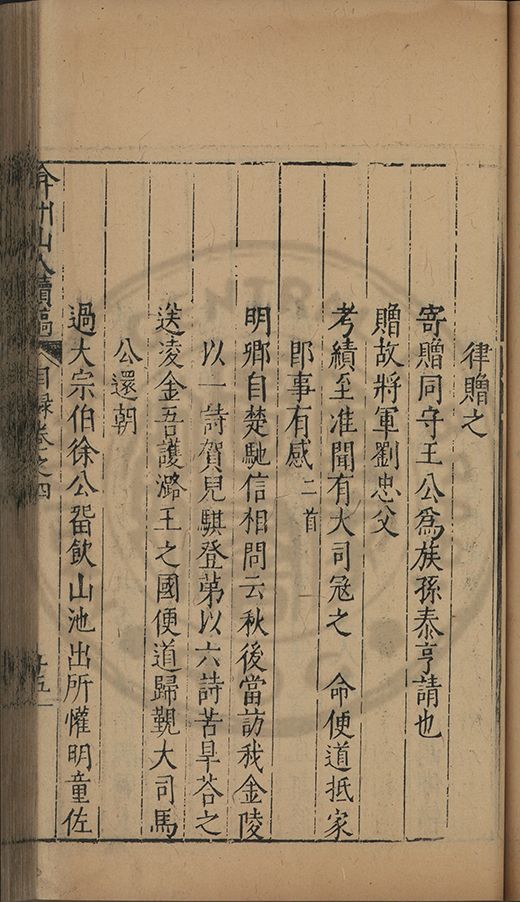 律贈之
寄贈同守王公爲族孫泰亨請也
贈故將軍劉忠父
考績至准聞有大司冦之　命便道抵家
即事有感二首
明卿自楚馳信相問云秋後當訪我金陵
以一詩賀兒騏登第以六詩苦旱荅之
送凌金吾護潞王之國便道歸覲大司馬
公還朝
過大宗伯徐公畱飲山池出所懽明童佐
弇州山人續稿
目録卷之四
廿五